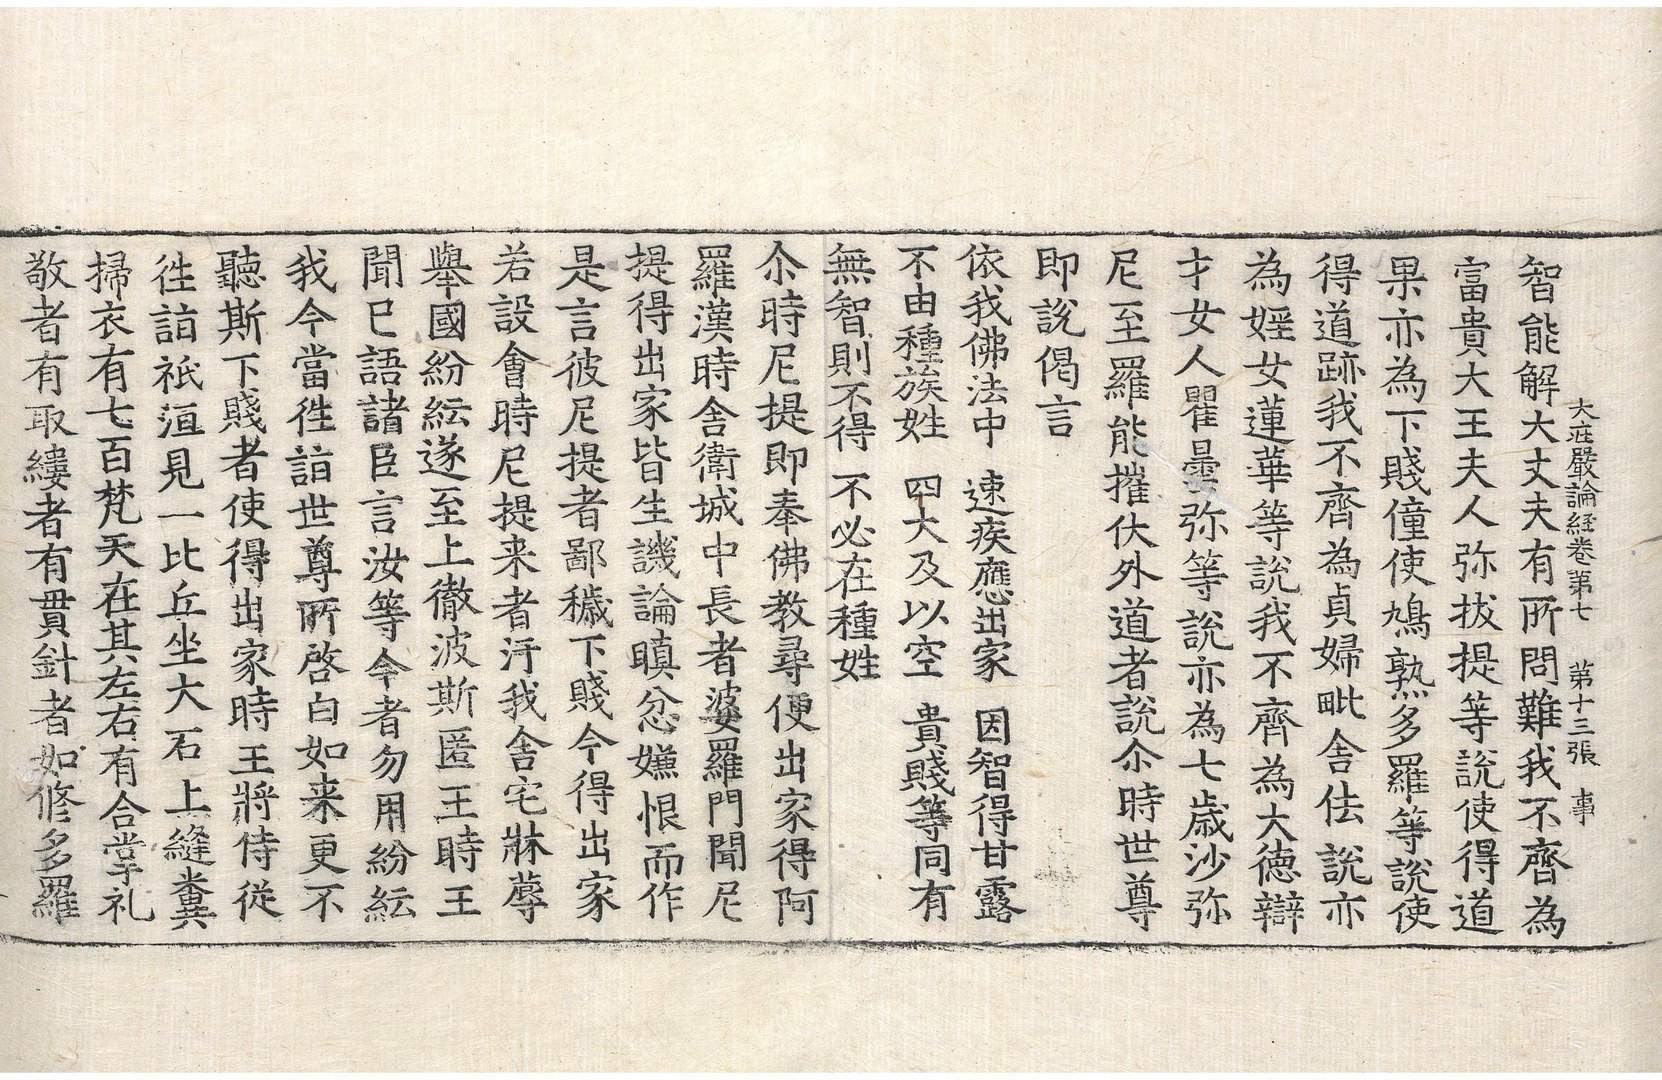 大荘嚴論経卷第七 第十三張 事
智能解大丈夫有所問難我不齊為
富貴大王夫人弥拔提等說使得道
果亦為下賤僮使鳩熟多羅等說使
得道跡我不齊為貞婦毗舍佉說亦
為婬女蓮華等說我不齊為大德辯
才女人瞿曇弥等說亦為七歲沙弥
尼至羅能摧伏外道者說尒時世尊
即說偈言
依我佛法中 速疾應出家 因智得甘露
不由種族姓 四大及以空 貴賤等同有
無智則不得 不必在種姓
尒時尼提即奉佛教尋便出家得阿
羅漢時舍衛城中長者婆羅門聞尼
提得出家皆生譏論瞋忿嫌恨而作
是言彼尼提者鄙穢下賤今得出家
若設會時尼提来者汙我舍宅牀蓐
舉國紛紜遂至上徹波斯匿王時王
聞已語諸臣言汝等今者勿用紛紜
我今當徃詣世尊所啓白如来更不
聽斯下賤者使得出家時王將侍從
徃詣祇洹見一比丘坐大石上縫糞
掃衣有七百梵天在其左右有合掌礼
敬者有取縷者有貫針者如修多羅